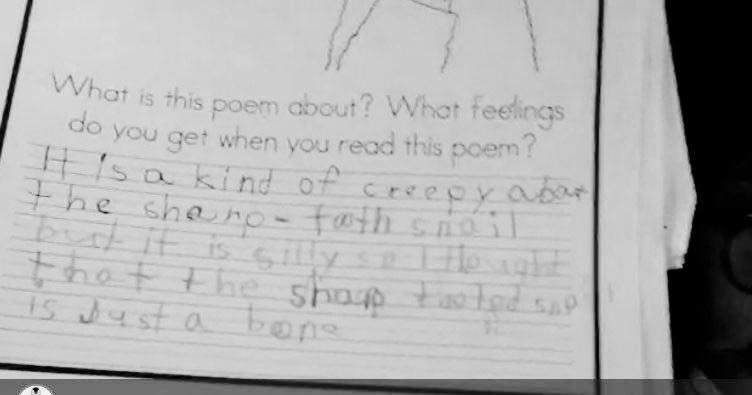 What is this poem about? What feelings
do you get when you read this poem?
It is a kind of creepy abat
the sharp-tooth snail
but it is silly so I thought
that the sharp tooted snp
is Just a bone